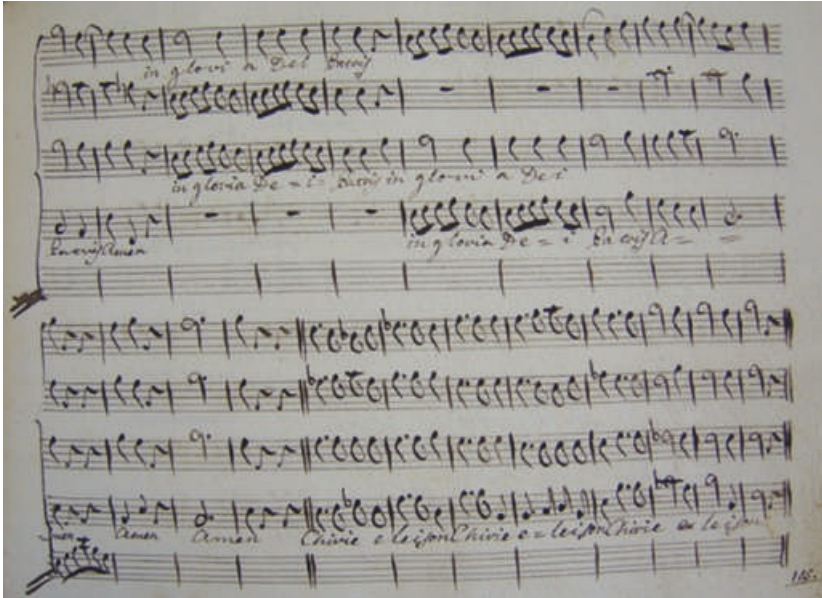 in glori a Dei Patris
in gloria De = i Patris in glori a Dei
Patris Amen in gloria De = i Patris A = =
Amen Amen Amen Chirie e leison Chirie e = leison Chirie e leison